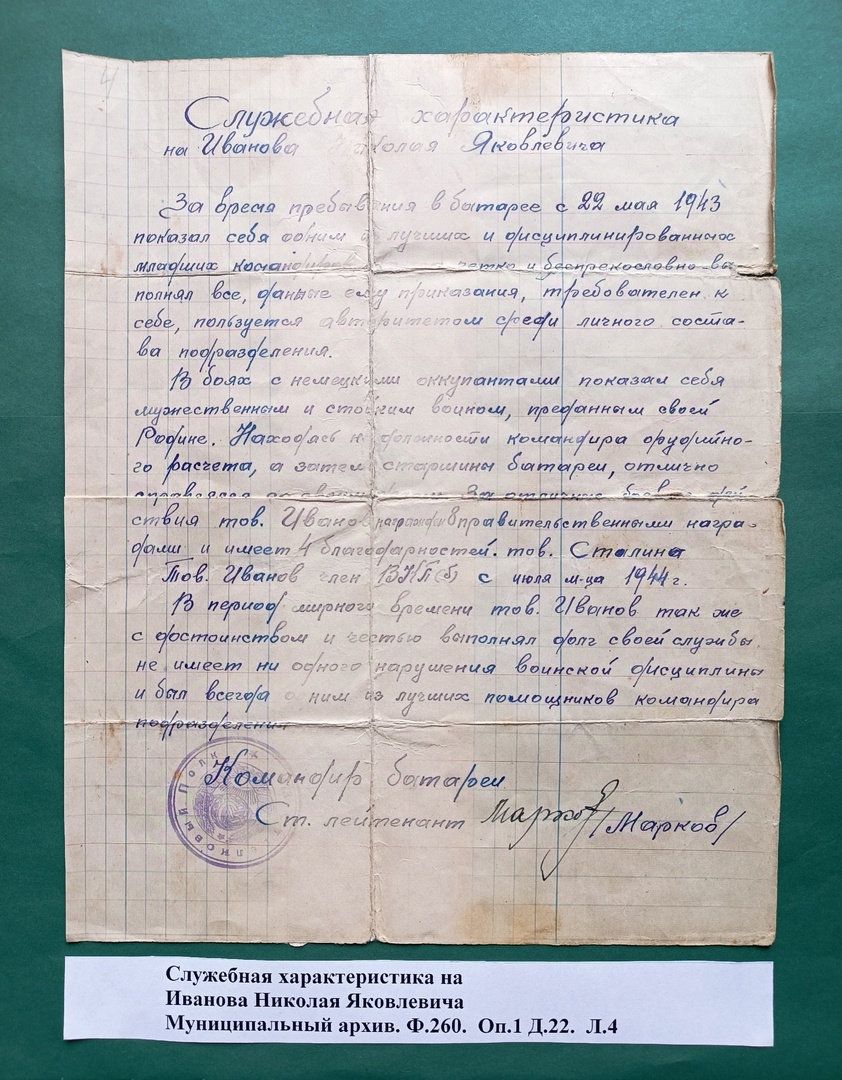 4
Служебная характеристика
на Иванова Николая Яковлевича
За время пребывания в батарее с 22 мая 1943
показал себя одним из лучших и дисциплинированных
младших командиров четко и беспрекословно вы
полнял все, данные ему приказания, требователен к
себе, пользуется авторитетом среди личного соста-
ва подразделения.
В боях с немецкими оккупантами показал себя
мужественным и стойким воином, преданным своей
Родине. Находясь на должности командира орудийно-
го расчета, а затем старшины батареи, отлично
справлялся со своими За отличные боевые дей
ствия тов. Иванов награжден 8 правительственными награ-
дами и имеет 4 благодарностей. тов. Сталина
Тов. Иванов член ВКП(б) с июля м-ца 1944 г.
В период мирного времени тов. Иванов так же
с достоинством и честью выполнял долг своей службы,
не имеет ни одного нарушения воинской дисциплины
и был всегда одним из лучших помощников командира
подразделения
Командир батареи
Ст. лейтенант Марков /Марков/
Стрелковый Полк
Служебная характеристика на
Иванова Николая Яковлевича
Муниципальный архив. Ф.260. Оп.1 Д.22. Л.4